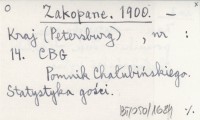 Zakopane. 1900. —
Kraj (Petersburg) , nr :
14. CBG
Pomnik Chałubińskiego.
Statystyka gości.